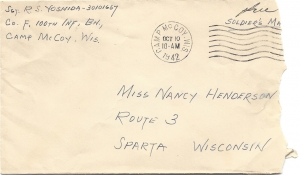 Sgt. R.S. Yoshida - 30101667
Co. F, 100th Inf. Bn,
Camp McCoy, Wis.
Free
Soldier's Ma
CAMP McCOY, WIS.
OCT 10
10-AM
1942
Miss Nancy Henderson
Route 3
Sparta Wisconsin